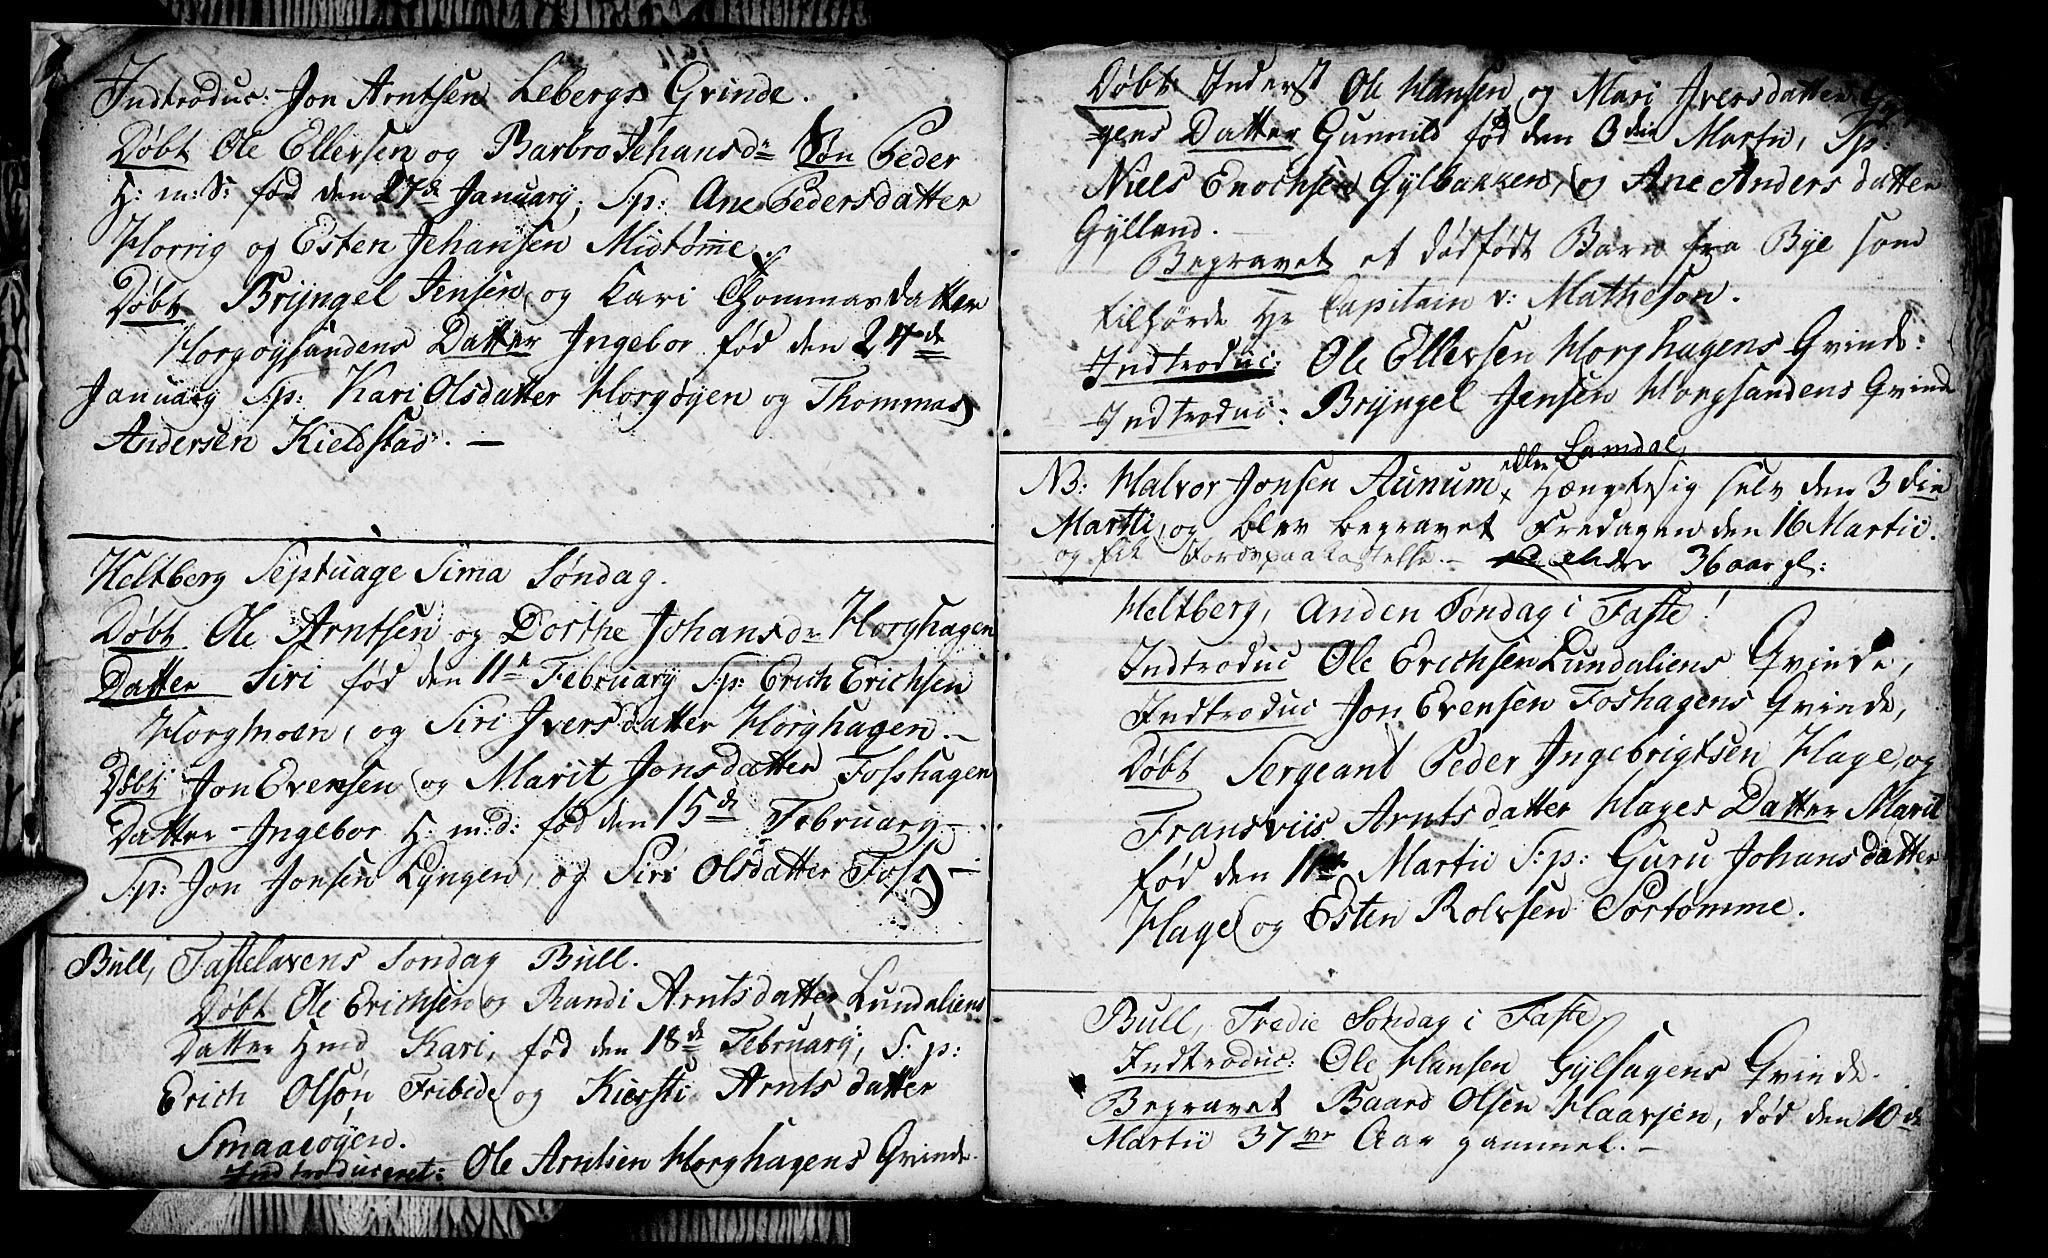 Indtroduc: Jon Arntsen Lebergs Qvinde.
Døbt Ole Ellevsen og Barbro Jehansdr Søn Peder
H: m: S: fød den 27de January, Sp: Ane Pedersdatter
Horrig og Esten Jehansen Midtømme.
Døbt Bryngel Jensen og Kari Thommasdatter
Horgøysandens Datter Ingebor fød den 24de
January Sp: Kari Olsdatter Horgøyen og Thommas
Andersen Kieldstad. —
Heltberg Septuagesima Søndag.
Døbt Ole Arntsen og Dorthe Johansdr Horghagen
Datter Siri fød den 11te February Sp: Erich Erichsen
Horgmoen, og Siri Iversdatter Horghagen. —
Døbt Jon Evensen og Marit Jonsdatter Foshagen
Datter Ingebor H: m: d: fød den 15de February —
Sp: Jon Jonsen Lyngen, og Siri Olsdatter Foss —
Bull, Fastelavens Søndag Bull.
Døbt Ole Erichsen og Randi Arntsdatter Lundaliens
Datter Hmd Kari, fød den 18de February, S: p:
Erich Olsøn Fribide og Kiersti Arntsdatter
Smaaeøyen.
Indtroduceret: Ole Arntsen Horghagens Qvinde.
Døbt Inderst Ole Hansen og Mari Iversdatter
gens Datter Gunnild fød den 3die Martii, Sp:
Niels Enochsen Gylbakken, og Ane Andersdatter
Gylland. —
Begravet et dødfødt Barn fra Bye som
tilhørde Hr Capitain v: Matheson.
Indtroduc: Ole Ellevsen Horghagens Qvinde:
Indtroduc: Bryngel Jensen Horgsandens Qvinde
eller Lamdal
NB: Halvor Jonsen Aunum x Hængte sig selv den 3die
Martii, og blev begravet Fredagen den 16 Martii.
og fik Jordspaakastelse. — 36 aar gl:
Heltberg, Anden Søndag i Faste!
Indtroduc Ole Erichsen Lundaliens Qvinde,
Indtroduc Jon Evensen Foshagens Qvinde,
Døbt Sergeant Peder Ingebrigtsen Hage, og
Fransviis Arntsdatter Hages Datter Marit
fød den 11te Martii S: p: Guru Johansdatter
Hage og Esten Rolvsen Sørtømme.
Bull, Tredie Søndag i Faste
Indtroduc: Ole Hansen Gylhagens Qvinde.
Begravet Baard Olsen Haavsen, død den 10de
Martii 37ve Aar gammel. —